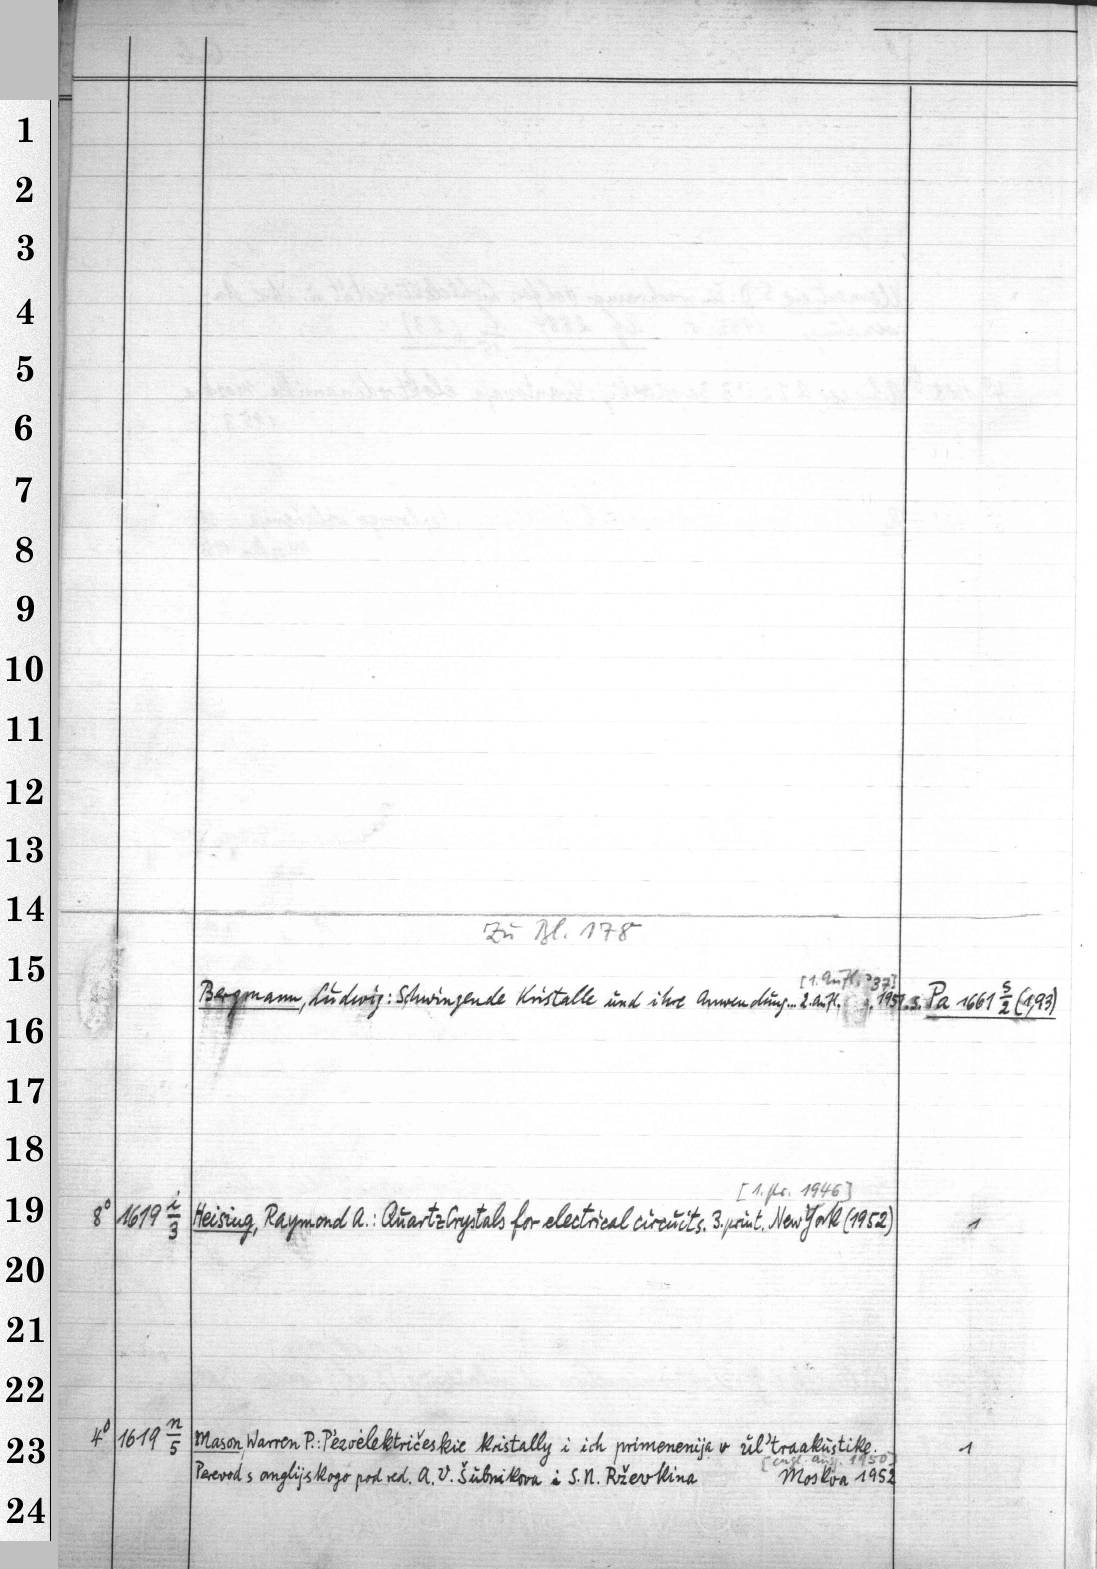 1
2
3
4
5
6
7
8
9
10
11
12
13
14
Zu Bl. 178
15
[1. Aufl. '37]
Bergmann, Ludwig: Schwingende Kristalle und ihre Anwendung... 2. Aufl. 1951. s. Pa 1661 5/2 (1,93)
16
17
18
[1. pr. 1946]
19
8° 1619 i/3 Heising, Raymond A.: Quartz Crystals for electrical circuits. 3. print. New York (1952) 1
20
21
22
23
4° 1619 n/5 Mason, Warren P.: P'ezoėlektričeskie kristally i ich primenenija v ul'traakustike. 1
[engl. ausg. 1950]
Perevod s anglijskogo pod red. A. V. Šubnikova i S. N. Rževkina Moskva 1952
24